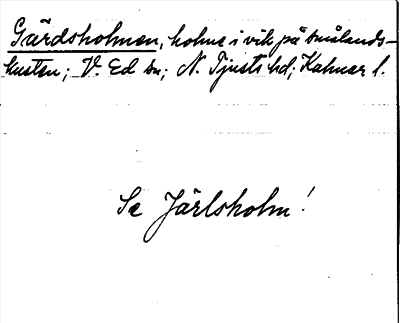 Gärdsholmen, holme i vik på Smålands-
kusten; V. Ed sn; N. Tjusts hd; Kalmar l.
Se Järlsholm!